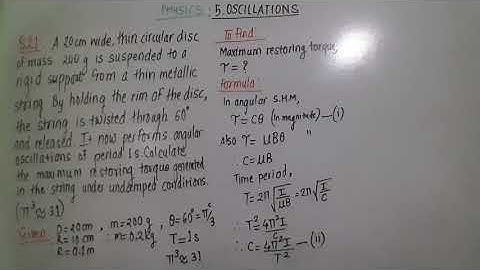 PHYSICS : 5. OSCILLATIONS
Q.21 A 20cm wide, thin circular disc
of mass 200 g is suspended to a
rigid support from a thin metallic
string. By holding the rim of the disc,
the string is twisted through 60°
and released. It now performs angular
oscillations of period 1s. Calculate
the maximum restoring torque generated
in the string under undamped conditions.
(π³ ≈ 31)
Given
D = 20cm , m = 200g , θ = 60° = π/3 ᶜ
R = 10cm ∴ m = 0.2kg , T = 1s
R = 0.1m π³ ≈ 31
To Find
Maximum restoring torque,
τ = ?
Formula:
In angular S.H.M,
τ = Cθ (in magnitude) — (i)
Also τ = μBθ "
∴ C = μB
Time period,
T = 2π√(I/μB) = 2π√(I/C)
∴ T² = 4π²I/C
∴ C = 4π²I/T² — (ii)